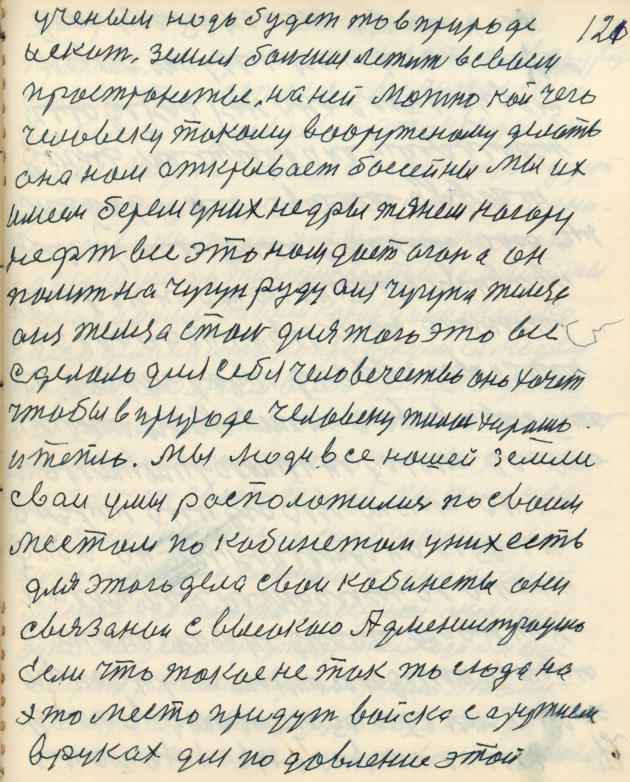 ученым надь будет то в природе 120
искат. земля баиши летит в своем
пространстве, на ней можно кой чего
человеку такому вооруженому делать
она нам открывает бассейны мы их
имеем берем у них недры тянем на гору
нефт все это нам дает огон а он
полит на чугун руду, ис чугуна железе
ис железа стал для того это все
сделало для себя человечество оно хочет
чтобы в природе человеку жилос хорошо.
и тепло. Мы люди все нашей земли
сваи умы расположилия по своим
местам по кабинетом у них есть
для этого дела сваи кабинеты они
свьязанои с высокою Админинстрацию
Если что такое не так то сюда на
это место придут войска с оружием
в руках для подовление этой